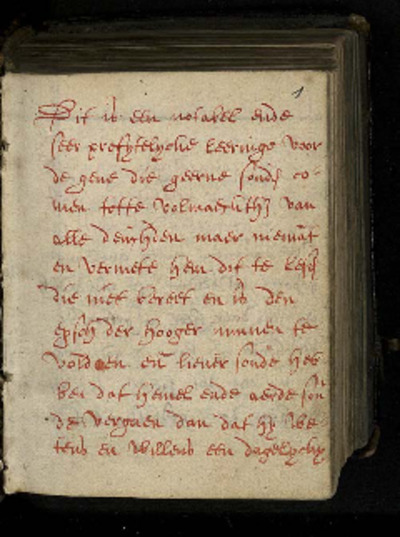 1
Dit is een notabel ende
seer profytelycke leeringe voor
de gene die geerne sonde co-
men totte volmaectheyt van
alle deuchden maer niemāt
en vermete hem dit te lesē
die niet bereet en is den
eysch der hooger minnen te
voldoen en liever sonde heb
ben dat hemel ende aerde son
de vergaen dan dat hy we-
tens en willens een dagelycxe